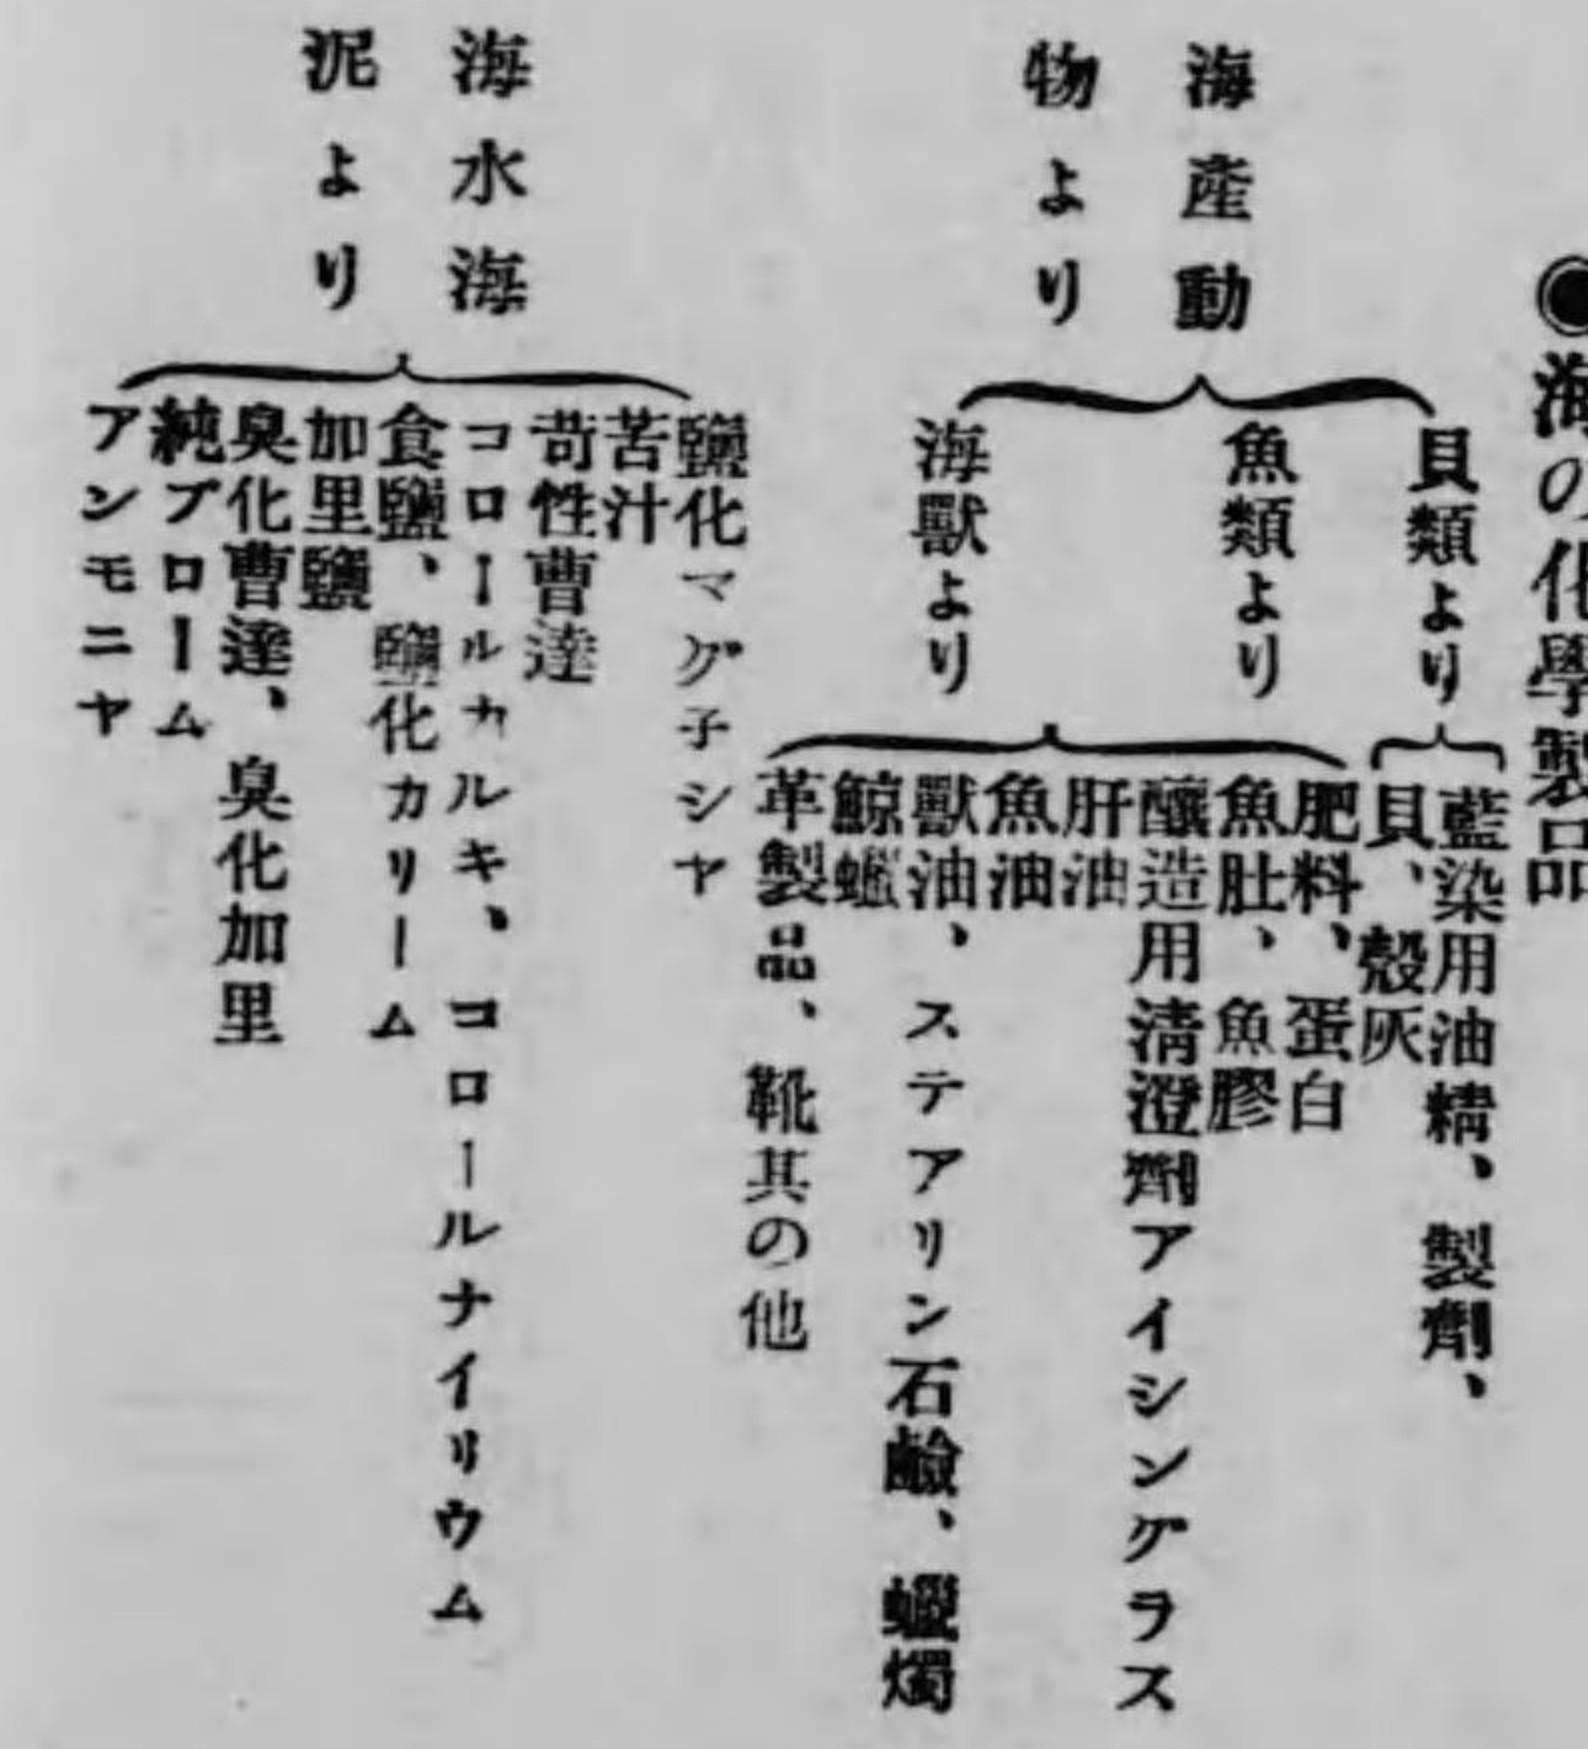 ◉海の化學製品
海産動
物より
貝類より
藍染用油精、製劑、
貝、殼灰
魚類より
海獸より
肥料、蛋白
魚肚、魚膠
釀造用淸澄劑アイシングラス
肝油
魚油
獸油、ステアリン石鹼、蠟燭
鯨蠟
革製品、靴其の他
海水海
泥より
鹽化マグ子シヤ
苦汁
苛性曹達
コロールカルキ、コロールナイリウム
食鹽、鹽化カリーム
加里鹽
臭化曹達、臭化加里
純ブローム
アンモニヤ